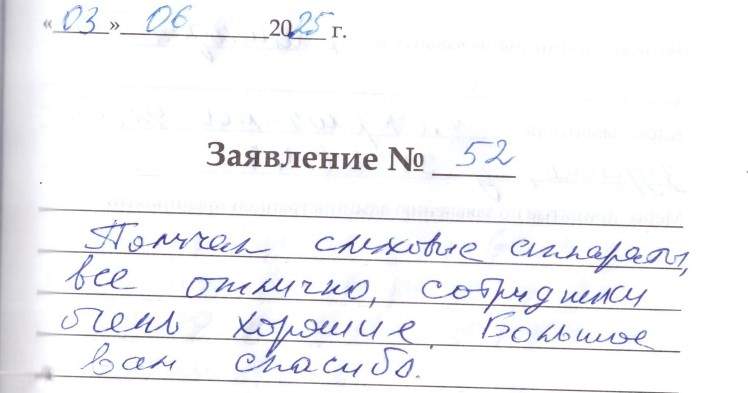 «03» 06 2025 г.
Заявление № 52
Получал слуховые аппараты,
все отлично, сотрудники
очень хорошие. Большое
вам спасибо.